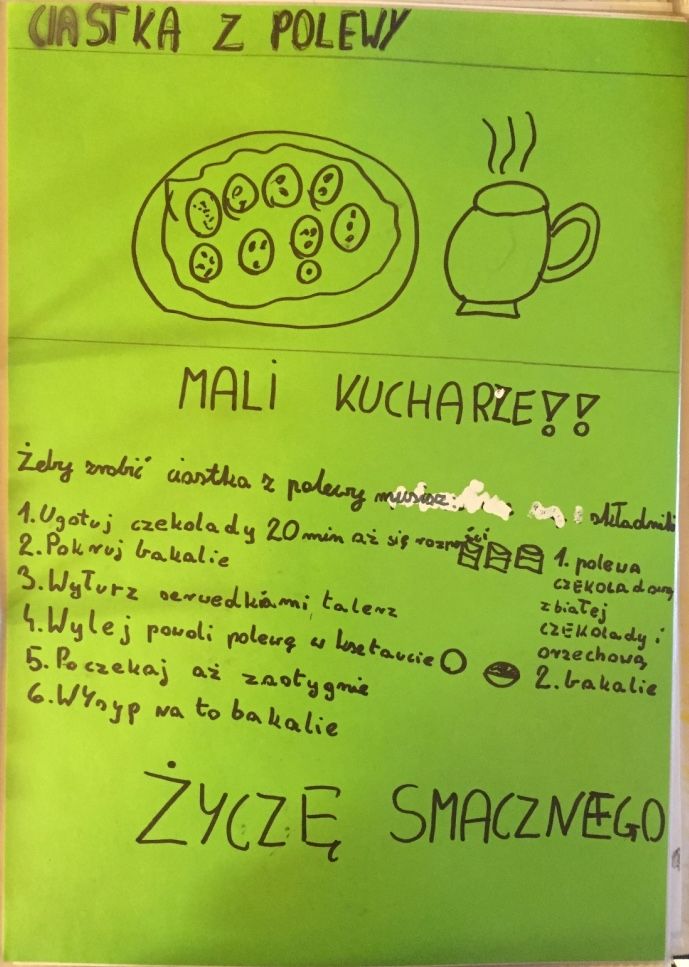 CIASTKA Z POLEWY
MALI KUCHARZE!!
Żeby zrobić ciastka z polewy musisz
składniki
1. Ugotuj czekolady 20 min aż się rozpuści
2. Pokruj bakalie
3. Wyłurz serwedkiami talerz
4. Wylej powoli polewę w kształcie
5. Poczekaj aż zastygnie
6. WYsyp na to bakalie
1. polewa
CZEKOLADową
z białej
CZEKOLADy i
orzechową
2. bakalie
ŻYCZĘ SMACZNEGO